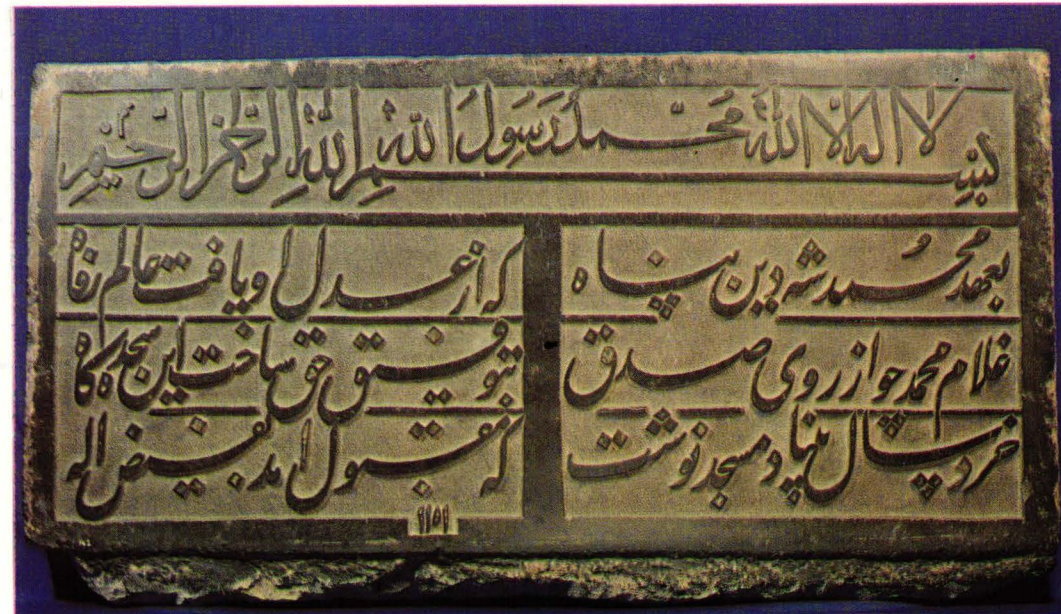 لا اله الا الله محمد رسول الله
بسم الله الرحمن الرحيم
بعهد محمد شه دین پناه
که از عدل او یافت عالم رفاه
غلام محمد چو از روی صدق
بتوفیق حق ساخت این سجده گاه
خرد سال بنیاد مسجد نوشت
که مقبول امد بفیض اله
۱۱۵۱